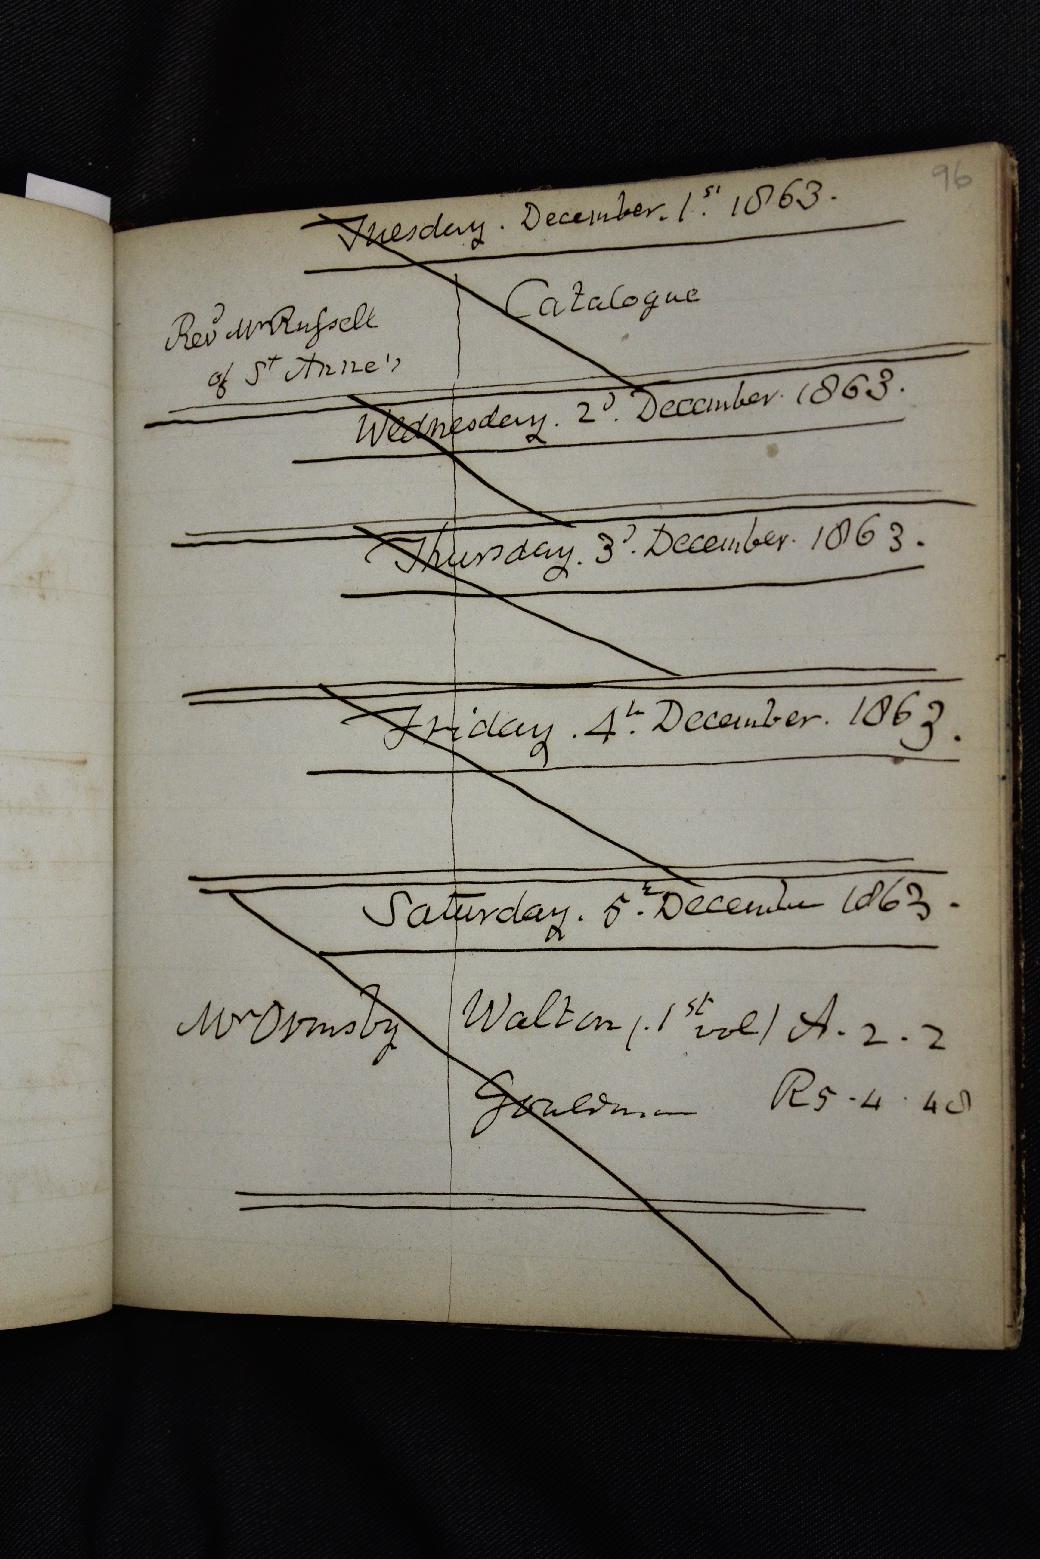 96
Tuesday. December. 1st. 1863.
Catalogue
Revd Mr Russell
of St Anne's
Wednesday. 2d. December. 1863.
Thursday. 3d. December. 1863.
Friday. 4th. December. 1863.
Saturday. 5th. December 1863.
Mr Ormsby Walton (1st vol) A. 2. 2
Gouldman R5. 4. 48